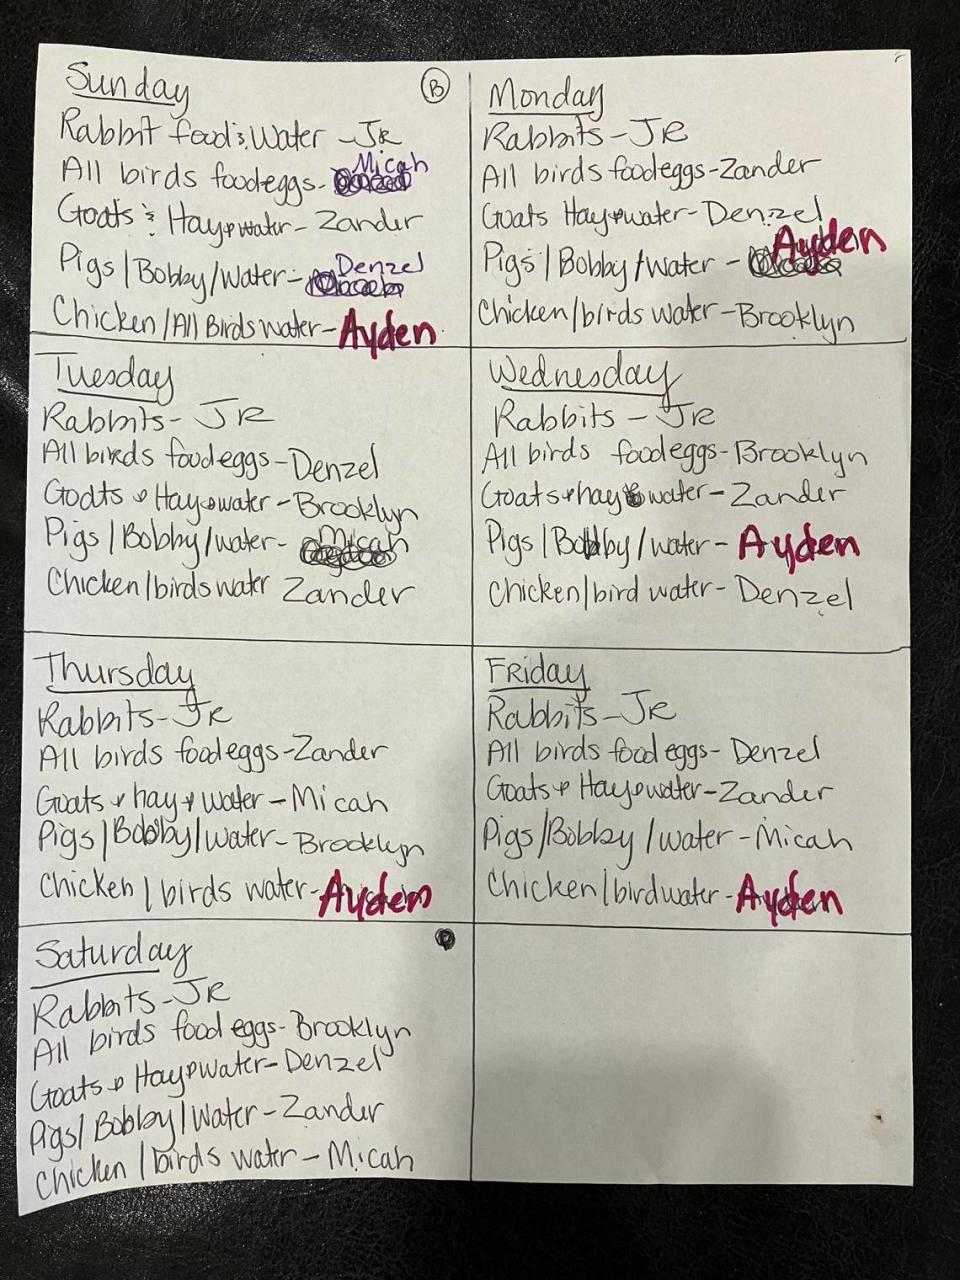 Sunday
B
Rabbit food & Water - JR
All birds food eggs - Micah
Goats & Hay + water - Zander
Pigs / Bobby / Water - Denzel
Chicken / All Birds water - Ayden
Monday
Rabbits - JR
All birds food eggs - Zander
Goats Hay + water - Denzel
Pigs / Bobby / Water - Ayden
Chicken / birds water - Brooklyn
Tuesday
Rabbits - JR
All birds food eggs - Denzel
Goats + Hay + water - Brooklyn
Pigs / Bobby / water - Micah
Chicken / birds water Zander
Wednesday
Rabbits - JR
All birds food eggs - Brooklyn
Goats + hay & water - Zander
Pigs / Bobby / water - Ayden
Chicken / bird water - Denzel
Thursday
Rabbits - JR
All birds food eggs - Zander
Goats + hay + water - Micah
Pigs / Bobby / water - Brooklyn
Chicken / birds water - Ayden
Friday
Rabbits - JR
All birds food eggs - Denzel
Goats + Hay + water - Zander
Pigs / Bobby / water - Micah
Chicken / bird water - Ayden
Saturday
Rabbits - JR
All birds food eggs - Brooklyn
Goats + Hay + Water - Denzel
Pigs / Bobby / Water - Zander
Chicken / birds water - Micah